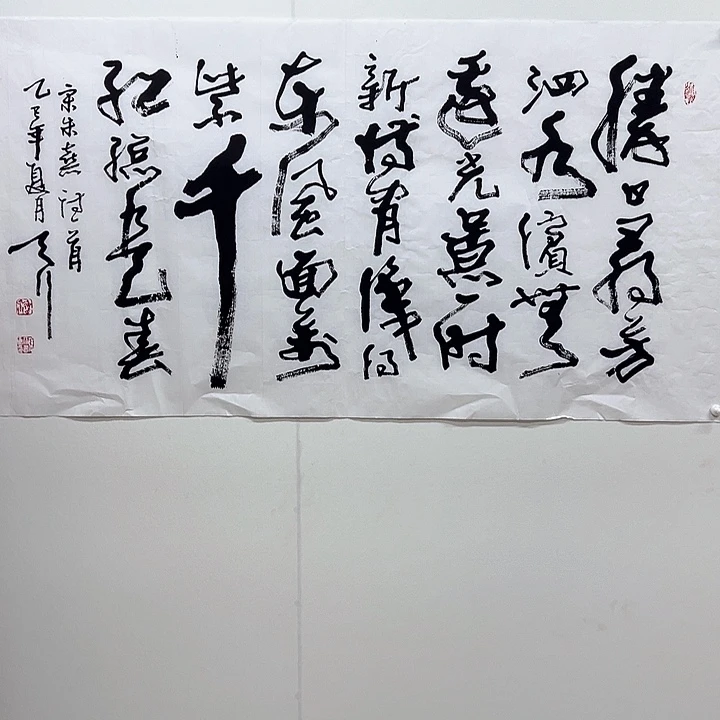 勝日尋芳
泗水濱無
邊光景一時
新等閒識得
東風面萬
紫千
紅總是春
宋朱熹詩首
乙巳年夏月